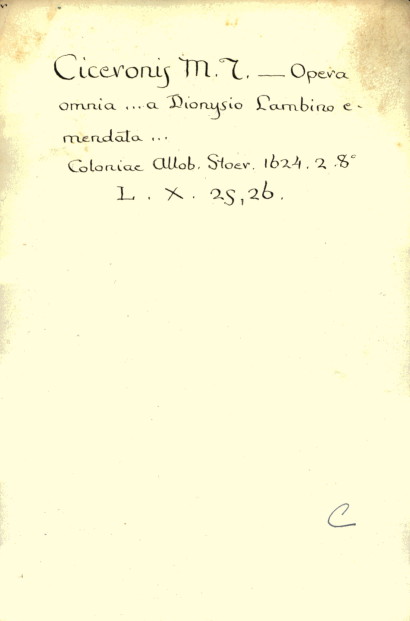 Ciceronis M. T. — Opera
omnia ... a Dionysio Lambino e-
mendata ...
Coloniae Allob. Stoer. 1624. 2. 8°
L. X. 25, 26.
C